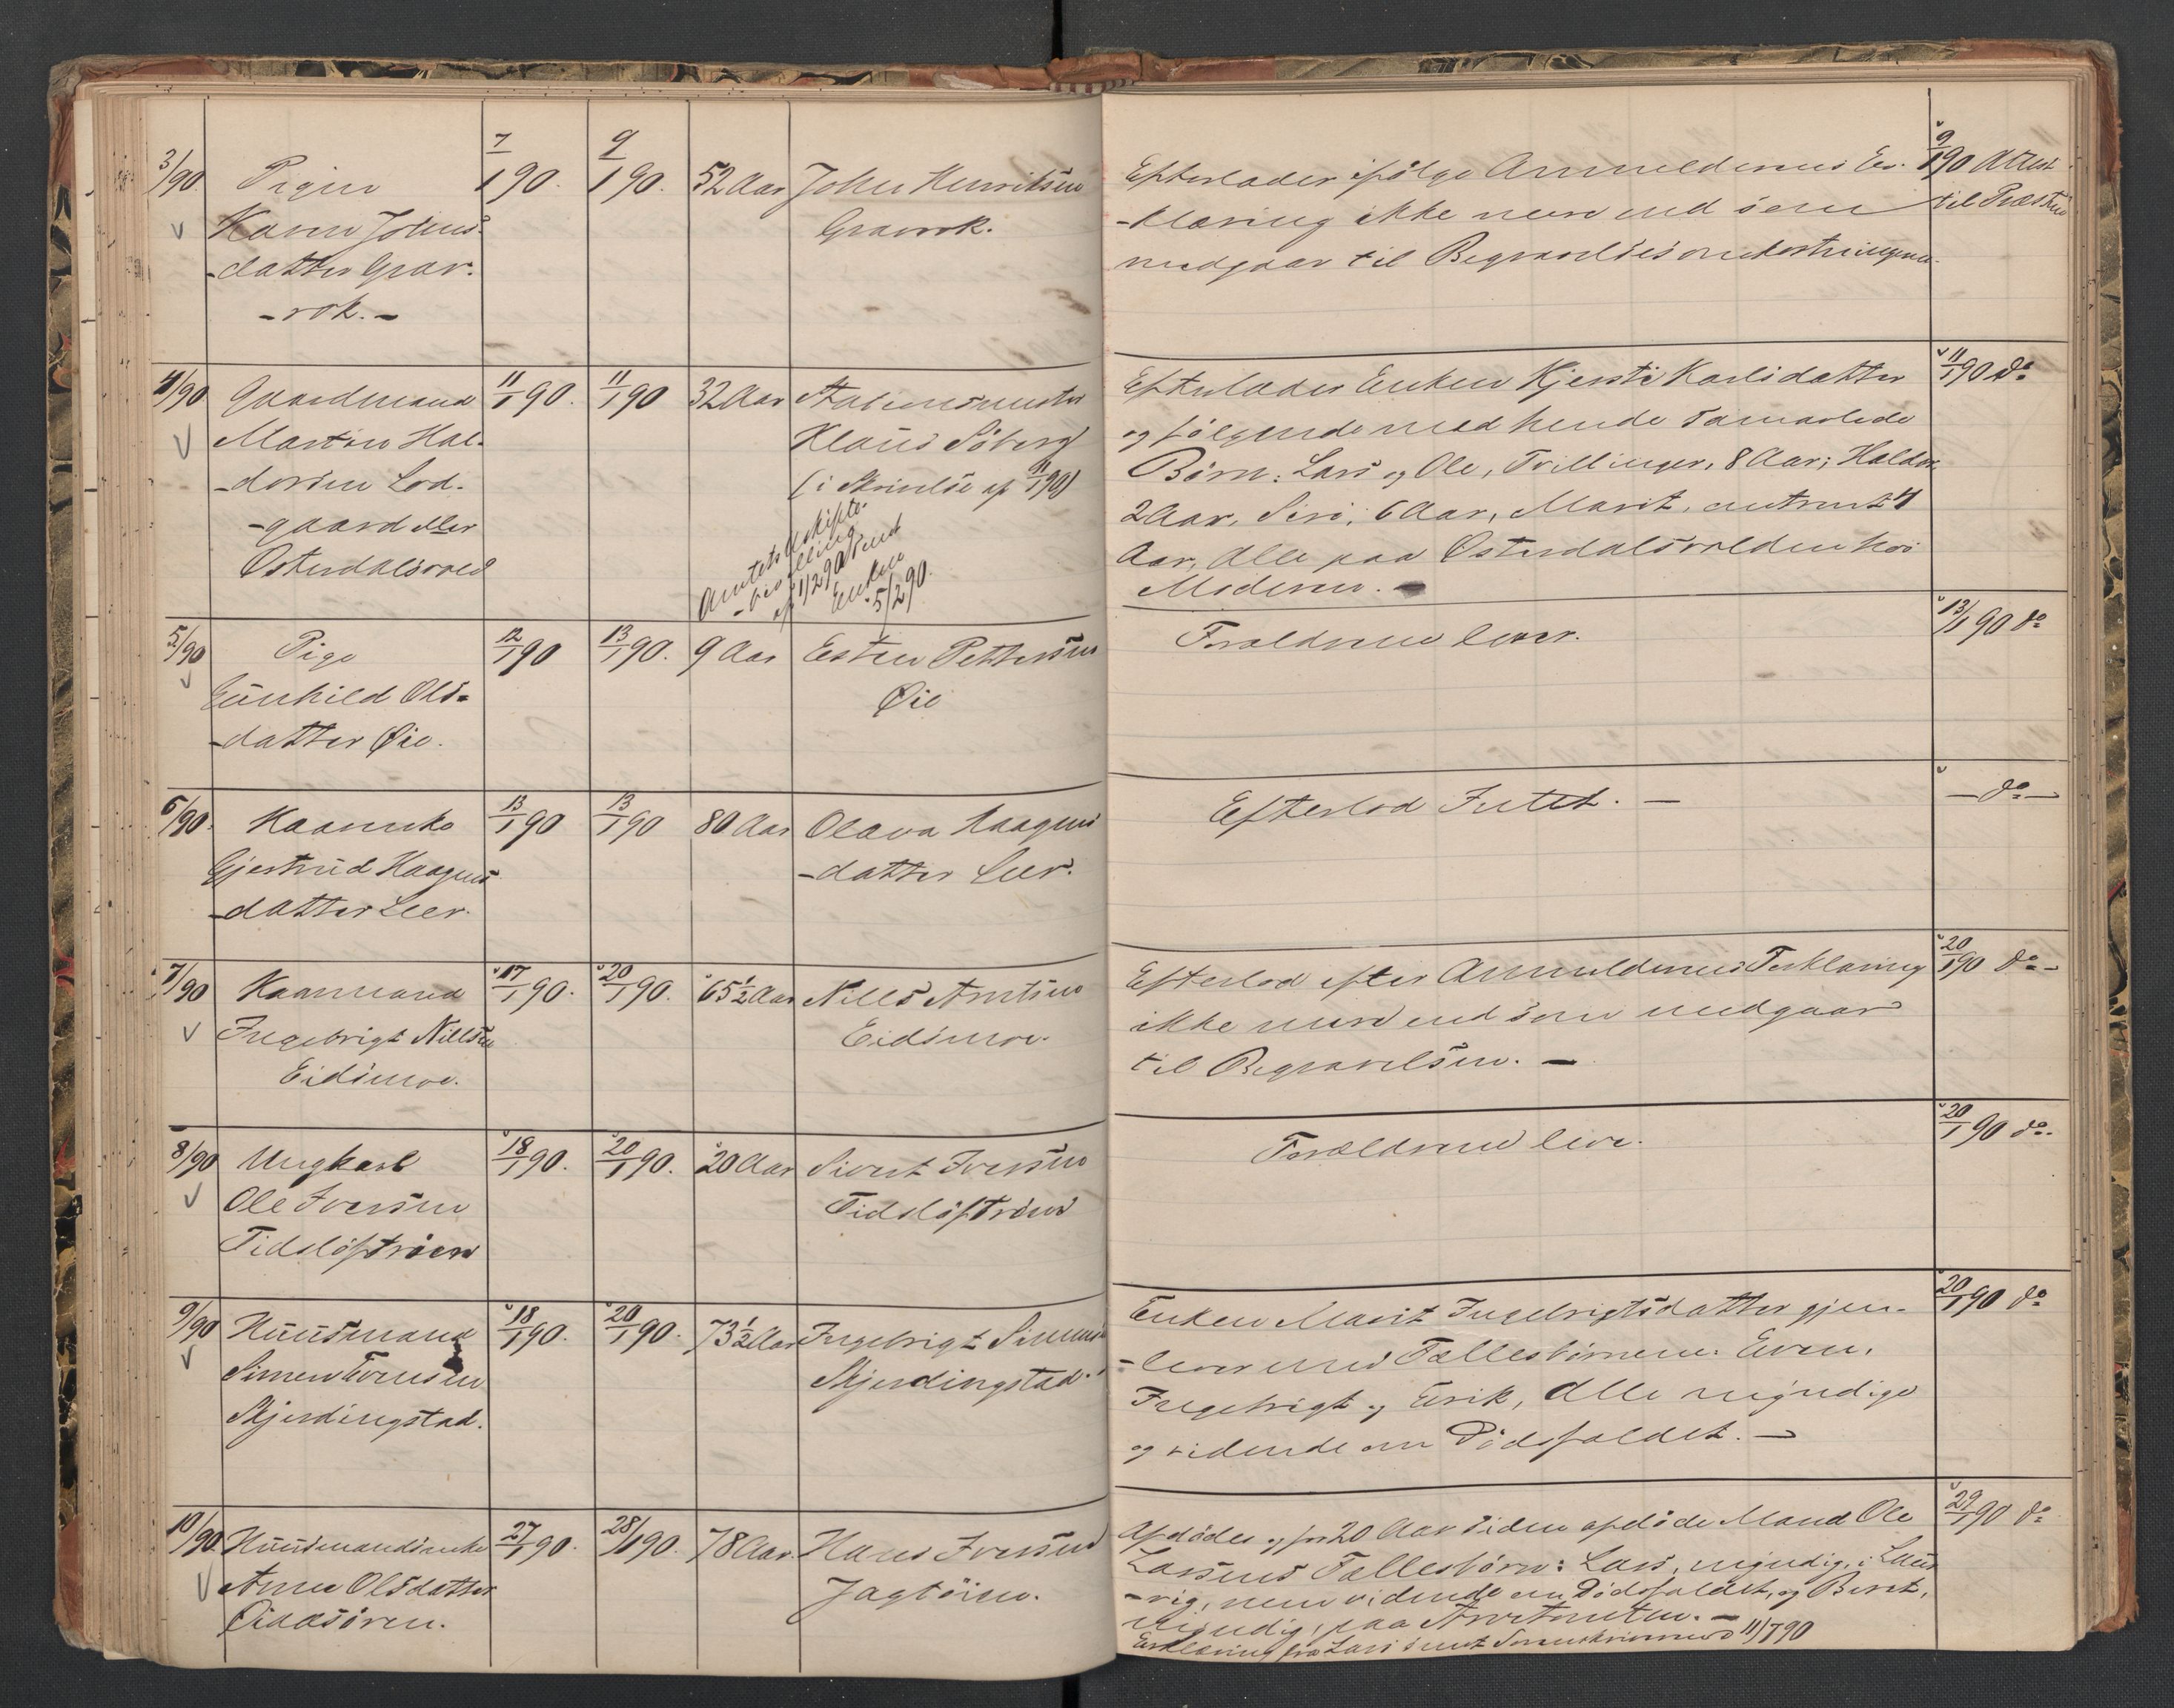 3/90 Pigen 7/1 90. 9/1 90. 52 Aar John Henriksen Efterlader ifølge Anmelderens Er- 9/1 90 Attest
Karen Johns- Gravrok. -klæring ikke mere end som til Præsten
-datter Grav- medgaar til Begravelsesomkostningerne.
-rok.-
4/90 Gaardmand 11/1 90. 11/1 90 32 Aar Efterlader Enken Kjersti Karlsdatter 11/1 90 do
Martin Hal- Klaus Søberg og følgende med hende sammavlede
-dorsen Lod- (i Skrivelse af 11/1 90) Børn: Lars og Ole, Tvillinger, 8 Aar; Haldor
-gaard eller Amtets Skifte- 2 Aar, Siri, 6 Aar, Marit, omtrent 4
Østerdalsvold -bevilling Aar, Alle paa Østerdalsvolden hos
af 1/2 90 sendt Moderen. -
Enken
5/2 90.
5/90 Pige 12/1 90 13/1 90. 9 Aar Esten Pettersen Forældrene lever. 13/1 90 do
Gunhild Ols- Øie
-datter Øie.
6/90. Kaarenke 13/1 90 13/1 90 80 Aar Olava Haagens Efterlod Intet. - - do -
Gjertrud Haagens -datter Leer.
-datter Leer.
7/90 Kaarmand 17/1 90. 20/1 90. 65 1/2 Aar Nills Arntsen Efterlod efter Anmelderens Forklaring 20/1 90 do -
Ingebrigt Nillsen Eidsmoe. ikke mere end som medgaar
Eidsmoe. til Begravelsen. -
8/90 Ungkarl 18/1 90. 20/1 90. 20 Aar Sivert Iversen Forældrene leve. 20/1 90 do.
Ole Iversen Fidsløftrøen
Fidsløftrøen
9/90 Huusmand 18/1 90. 20/1 90. 73 1/2 Aar Ingebrigt Simens Enken Marit Ingebrigtsdatter gjen- 20/1 90 do
Simen Evensen Skjerdingstad. -lever med Fællesbørnene: Even,
Skjerdingstad. Ingebrigt og Erik, Alle myndige
og vidende om Dødsfaldet. -
10/90. Huusmandsenke 27/1 90. 28/1 90. 78 Aar. Hans Iversen Afdødes og for 20 Aar siden afdøde Mand Ole 29/1 90 do
Anne Olsdatter Jagtøien. Larsens Fællesbørn: Lars, myndig, i
Øiaasøren. men vidende om Dødsfaldet, og Beret,
myndig, paa -
Erklæring fra Lars sendt 11/7 90